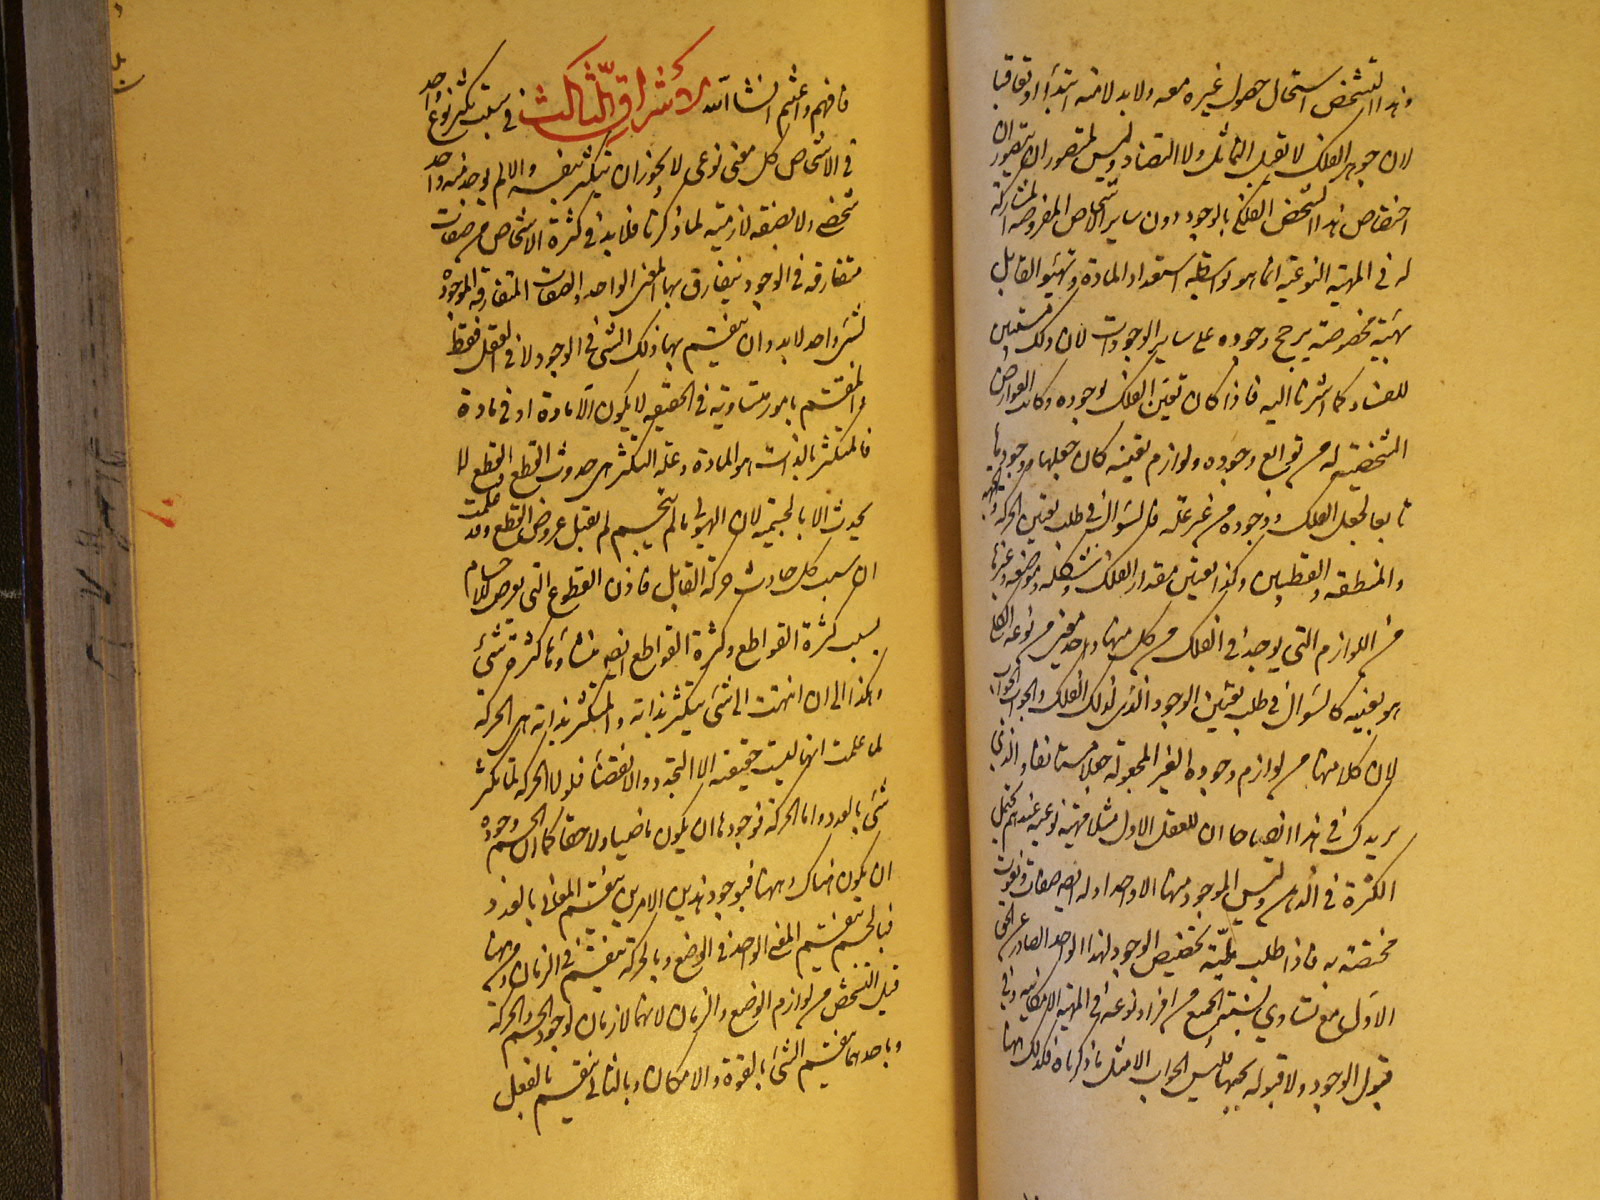 وهذا التشخص استحال حصول غيره معه ولا بد لا منه ابتدأ او تعاقبا
لان جوهر الفلك لا تقبل التماثل ولا التضاد وليس لمتصور ان يتصور ان
اختصاص هذا الشخص الفلكي بالوجود دون ساير الاشخاص المفروضه المشاركة
له في المهية النوعية انما هو بواسطة استعداد المادة وتهيئو القابل
بهيئة مخصوصة يرجح وجوده على ساير الوجودات لان ذلك مستبين
للفساد كما اشرنا اليه فاذا كان تعين الفلك بوجوده وكانت العوارض
الشخصية له من توابع وجوده ولوازم تعينه كان جعلها ووجودها
تابعا لجعل الفلك ووجوده من غير علة فالسؤال في طلب تعين الحركة والجهة
والمنطقه والقطبين وكذا تعين مقدار الفلك وشكله وموضعه وغيرها
من اللوازم التي يوجد في الفلك من كل منها واحد معين من نوعه الكلي
هو بعينه كالسؤال في طلب تعين الوجود الذي لذلك الفلك والجواب الجواب
لان كلا منها من لوازم وجوده الغير المجعولة جعلا مستانفا والذي
يريدك في هذا ايضاحا ان للعقل الاول مثلا مهية نوعية عندهم يحتمل
الكثرة في الذهن وليس الموجود منها الا واحد اوله ايضا صفات ونعوت
مختصة به فاذا طلب لمية تخصيص الوجود لهذا الواحد الصادر عن الحق
الاول مع تساوي نسبة الجميع من افراد نوعه في المهية الامكانية وفي
قبول الوجود ولا قبوله بحسبها فليس الجواب الا مثل ما ذكرناه فكذلك ههنا
فافهم واغتنم انشا الله الاشراق الثالث في سبب تكثر نوع واحد
في الاشخاص كل معنى نوعي لا يجوز ان يتكثر بنفسه والا لم يوجد منه واحد
شخصي ولا بصفة لازمته لما ذكرنا فلا بد في كثرة الاشخاص من صفات
متفارقه في الوجود يتفارق بها المعنى الواحد والصفات المتفارقه الموجودة
لشئ واحد لا بد وان ينقسم بها ذلك الشئ في الوجود لا في العقل فقط
والمنقسم بامور متساوية في الحقيقه لا يكون الا مادة او في مادة
فالمتكثر بالذات هو المادة وعلة التكثر هي حدوث القطع والقطع لا
يحدث الا بالجسمية لان الهيولى ما لم يتجسم لم يقبل عروض القطع وقد علمت
ان سبب كل حادث حركة القابل فاذن القطوع التي يعرض للاجسام
بسبب كثرة القواطع وكثرة القواطع ايضا منشاؤها كثرة شئ
وهكذا الى ان انتهت الى شئ يتكثر بذاته والمتكثر بذاته هي الحركة
لما علمت انها ليست حقيقته الا التجدد والانقضأ فلولا الحركة لما تكثر
شئ بالعدد واما الحركة فوجودها ان يكون ماضيا ولاحقا كما ان الجسم وجوده
ان يكون هناك وههنا فبوجود هذين الامرين ينقسم المعنى بالعدد
فبالجسم ينقسم المعنى الواحد في الوضع وبالحركة ينقسم في الزمان ومن ههنا
قيل التشخص من لوازم الوضع والزمان لانهما لازمان لوجود الجسم والحركة
وباحدهما ينقسم الشئ بالقوة والامكان وبالثاني ينقسم بالفعل